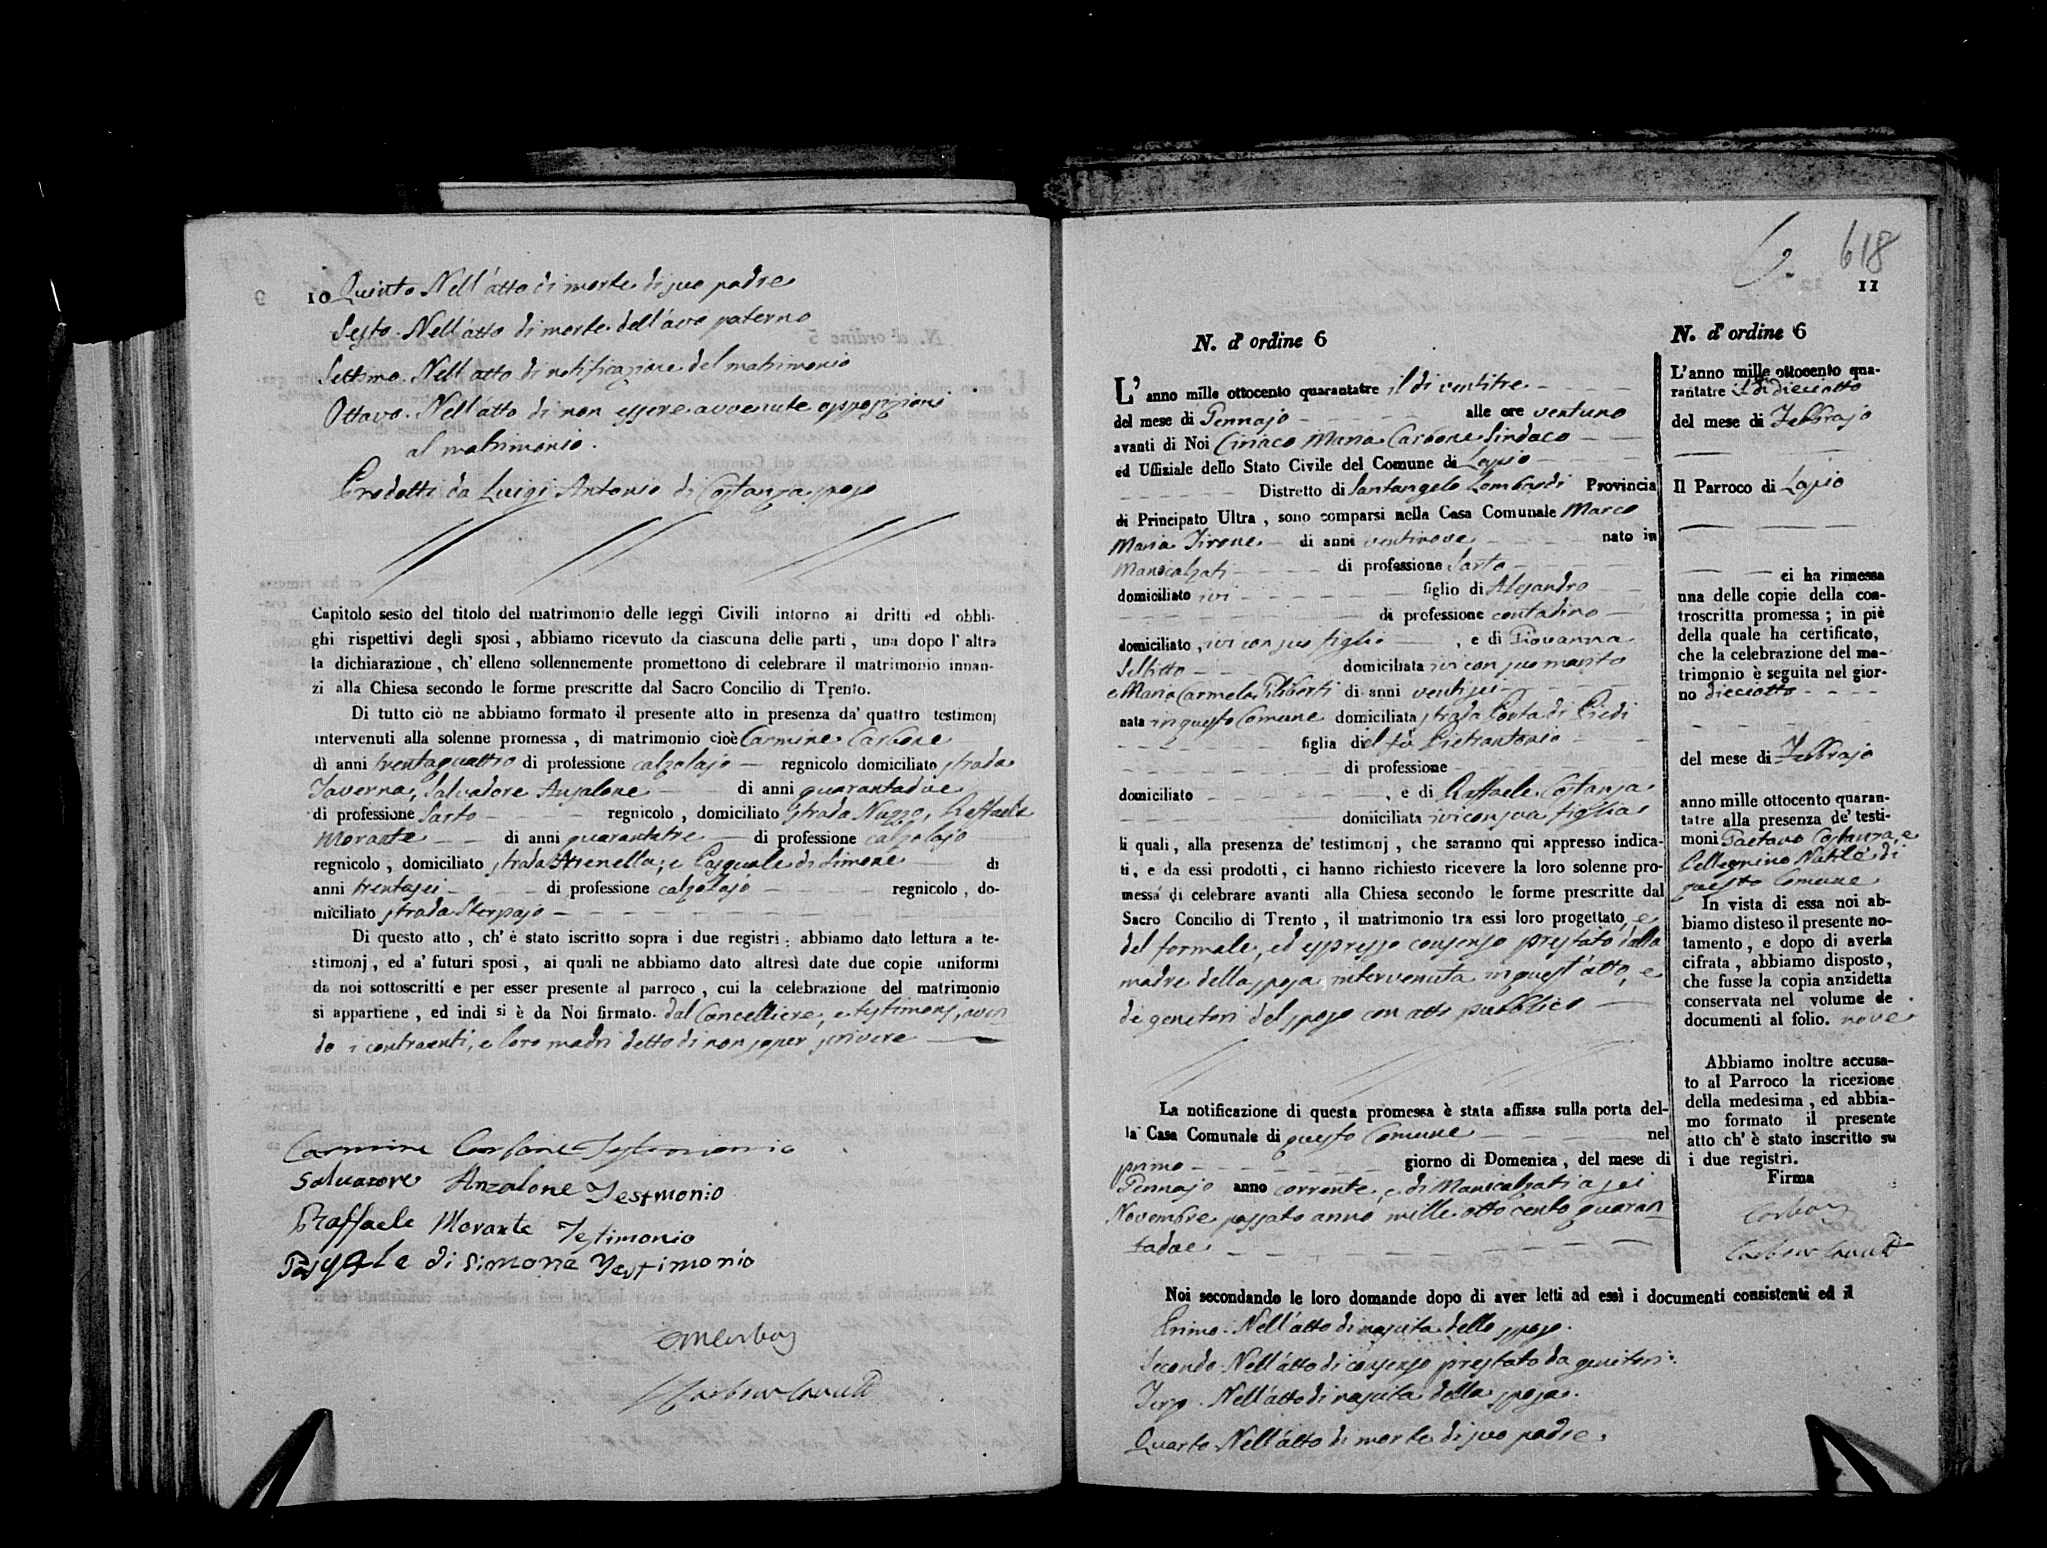 10 Quinto Nell'atto di morte di suo padre
Sesto. Nell'atto di morte dell'avo paterno
Settimo. Nell'atto di notificazione del matrimonio
Ottavo. Nell'atto di non essere avvenute opposizioni
al matrimonio.
Prodotti da Luigi Antonio di Costanza sposo
Capitolo sesto del titolo del matrimonio delle leggi Civili intorno ai dritti ed obbli-
ghi rispettivi degli sposi, abbiamo ricevuto da ciascuna delle parti, una dopo l'altra
la dichiarazione, ch'elleno sollennemente promettono di celebrare il matrimonio innan-
zi alla Chiesa secondo le forme prescritte dal Sacro Concilio di Trento.
Di tutto ciò ne abbiamo formato il presente atto in presenza da' quattro testimonj
intervenuti alla solenne promessa, di matrimonio cioè Carmine Carbone
di anni trentaquattro di professione calzolajo regnicolo domiciliato strada
Taverna, Salvadore Anzalone di anni quarantadue
di professione Sarto regnicolo, domiciliato strada Nuzzo, Raffaele
Morante di anni quarantatre di professione calzolajo
regnicolo, domiciliato strada Arenella, e Pasquale di Simone di
anni trentasei di professione calzolajo regnicolo, do-
miciliato strada Sterpajo
Di questo atto, ch'è stato iscritto sopra i due registri: abbiamo dato lettura a te-
stimonj, ed a' futuri sposi, ai quali ne abbiamo dato altresì date due copie uniformi
da noi sottoscritti e per esser presente al parroco, cui la celebrazione del matrimonio
si appartiene, ed indi si è da Noi firmato. dal Cancelliere, e testimonj, aven
do i contraenti, e loro madri detto di non saper scrivere
Carmine Carbone Testimonio
Salvatore Anzalone Testmonio
Raffaele Morante Testimonio
Pasquale di Simone Testimonio
618
6.
11
N. d'ordine 6
L'anno mille ottocento quarantatre il di ventitre
del mese di Gennajo alle ore ventuno
avanti di Noi Ciriaco Maria Carbone Sindaco
ed Uffiziale dello Stato Civile del Comune di Lapio
Distretto di Santangelo Lombardi Provincia
di Principato Ultra, sono comparsi nella Casa Comunale Marco
Maria Tirone di anni ventinove nato in
Manocalzati di professione Sarto
domiciliato ivi figlio di Alesandro
di professione contadino
domiciliato, ivi con suo figlio, e di Giovanna
domiciliata ivi con suo marito
e Maria Carmela Filiberti di anni ventisei
nata in questo Comune domiciliata strada Costa di Piedi
figlia del fù Pietrantonio
di professione
domiciliato, e di Raffaela Costanza
domiciliata ivi con sua figlia
li quali, alla presenza de' testimonj, che saranno qui appresso indica-
ti, e da essi prodotti, ci hanno richiesto ricevere la loro solenne pro-
messa di celebrare avanti alla Chiesa secondo le forme prescritte dal
Sacro Concilio di Trento, il matrimonio tra essi loro progettato, e
del formale, ed espresso consenso prestato dalla
madre della sposa intervenuta in quest'atto, e
di genitori del sposo con atto pubblico
La notificazione di questa promessa è stata affissa sulla porta del-
la Casa Comunale di questo Comune nel
primo giorno di Domenica, del mese di
Gennajo anno corrente, e di Manocalzati a sei
Novembre passato anno mille otto cento quaran
tadue
Noi secondando le loro domande dopo di aver letti ad essi i documenti consistenti ed il
Primo. Nell'atto di nascita dello sposo.
Secondo. Nell'atto di consenso prestato da genitori.
Terzo. Nell'atto di nascita della sposa.
Quarto. Nell'atto di morte di suo padre.
N. d'ordine 6
L'anno mille ottocento qua-
rantatre il di dieciotto
del mese di Febbrajo
Il Parroco di Lapio
ci ha rimessa
una delle copie della con-
troscritta promessa; in piè
della quale ha certificato,
che la celebrazione del ma-
trimonio è seguita nel gior-
no dieciotto
del mese di Febbrajo
anno mille ottocento quaran-
tatre alla presenza de' testi-
moni Gaetano Costanza, e
Pellegrino Natale di
questo Comune
In vista di essa noi ab-
biamo disteso il presente no-
tamento, e dopo di averla
cifrata, abbiamo disposto,
che fusse la copia anzidetta
conservata nel volume de
documenti al folio. nove
Abbiamo inoltre accusa-
to al Parroco la ricezione
della medesima, ed abbia-
mo formato il presente
atto ch'è stato inscritto su
i due registri.
Firma